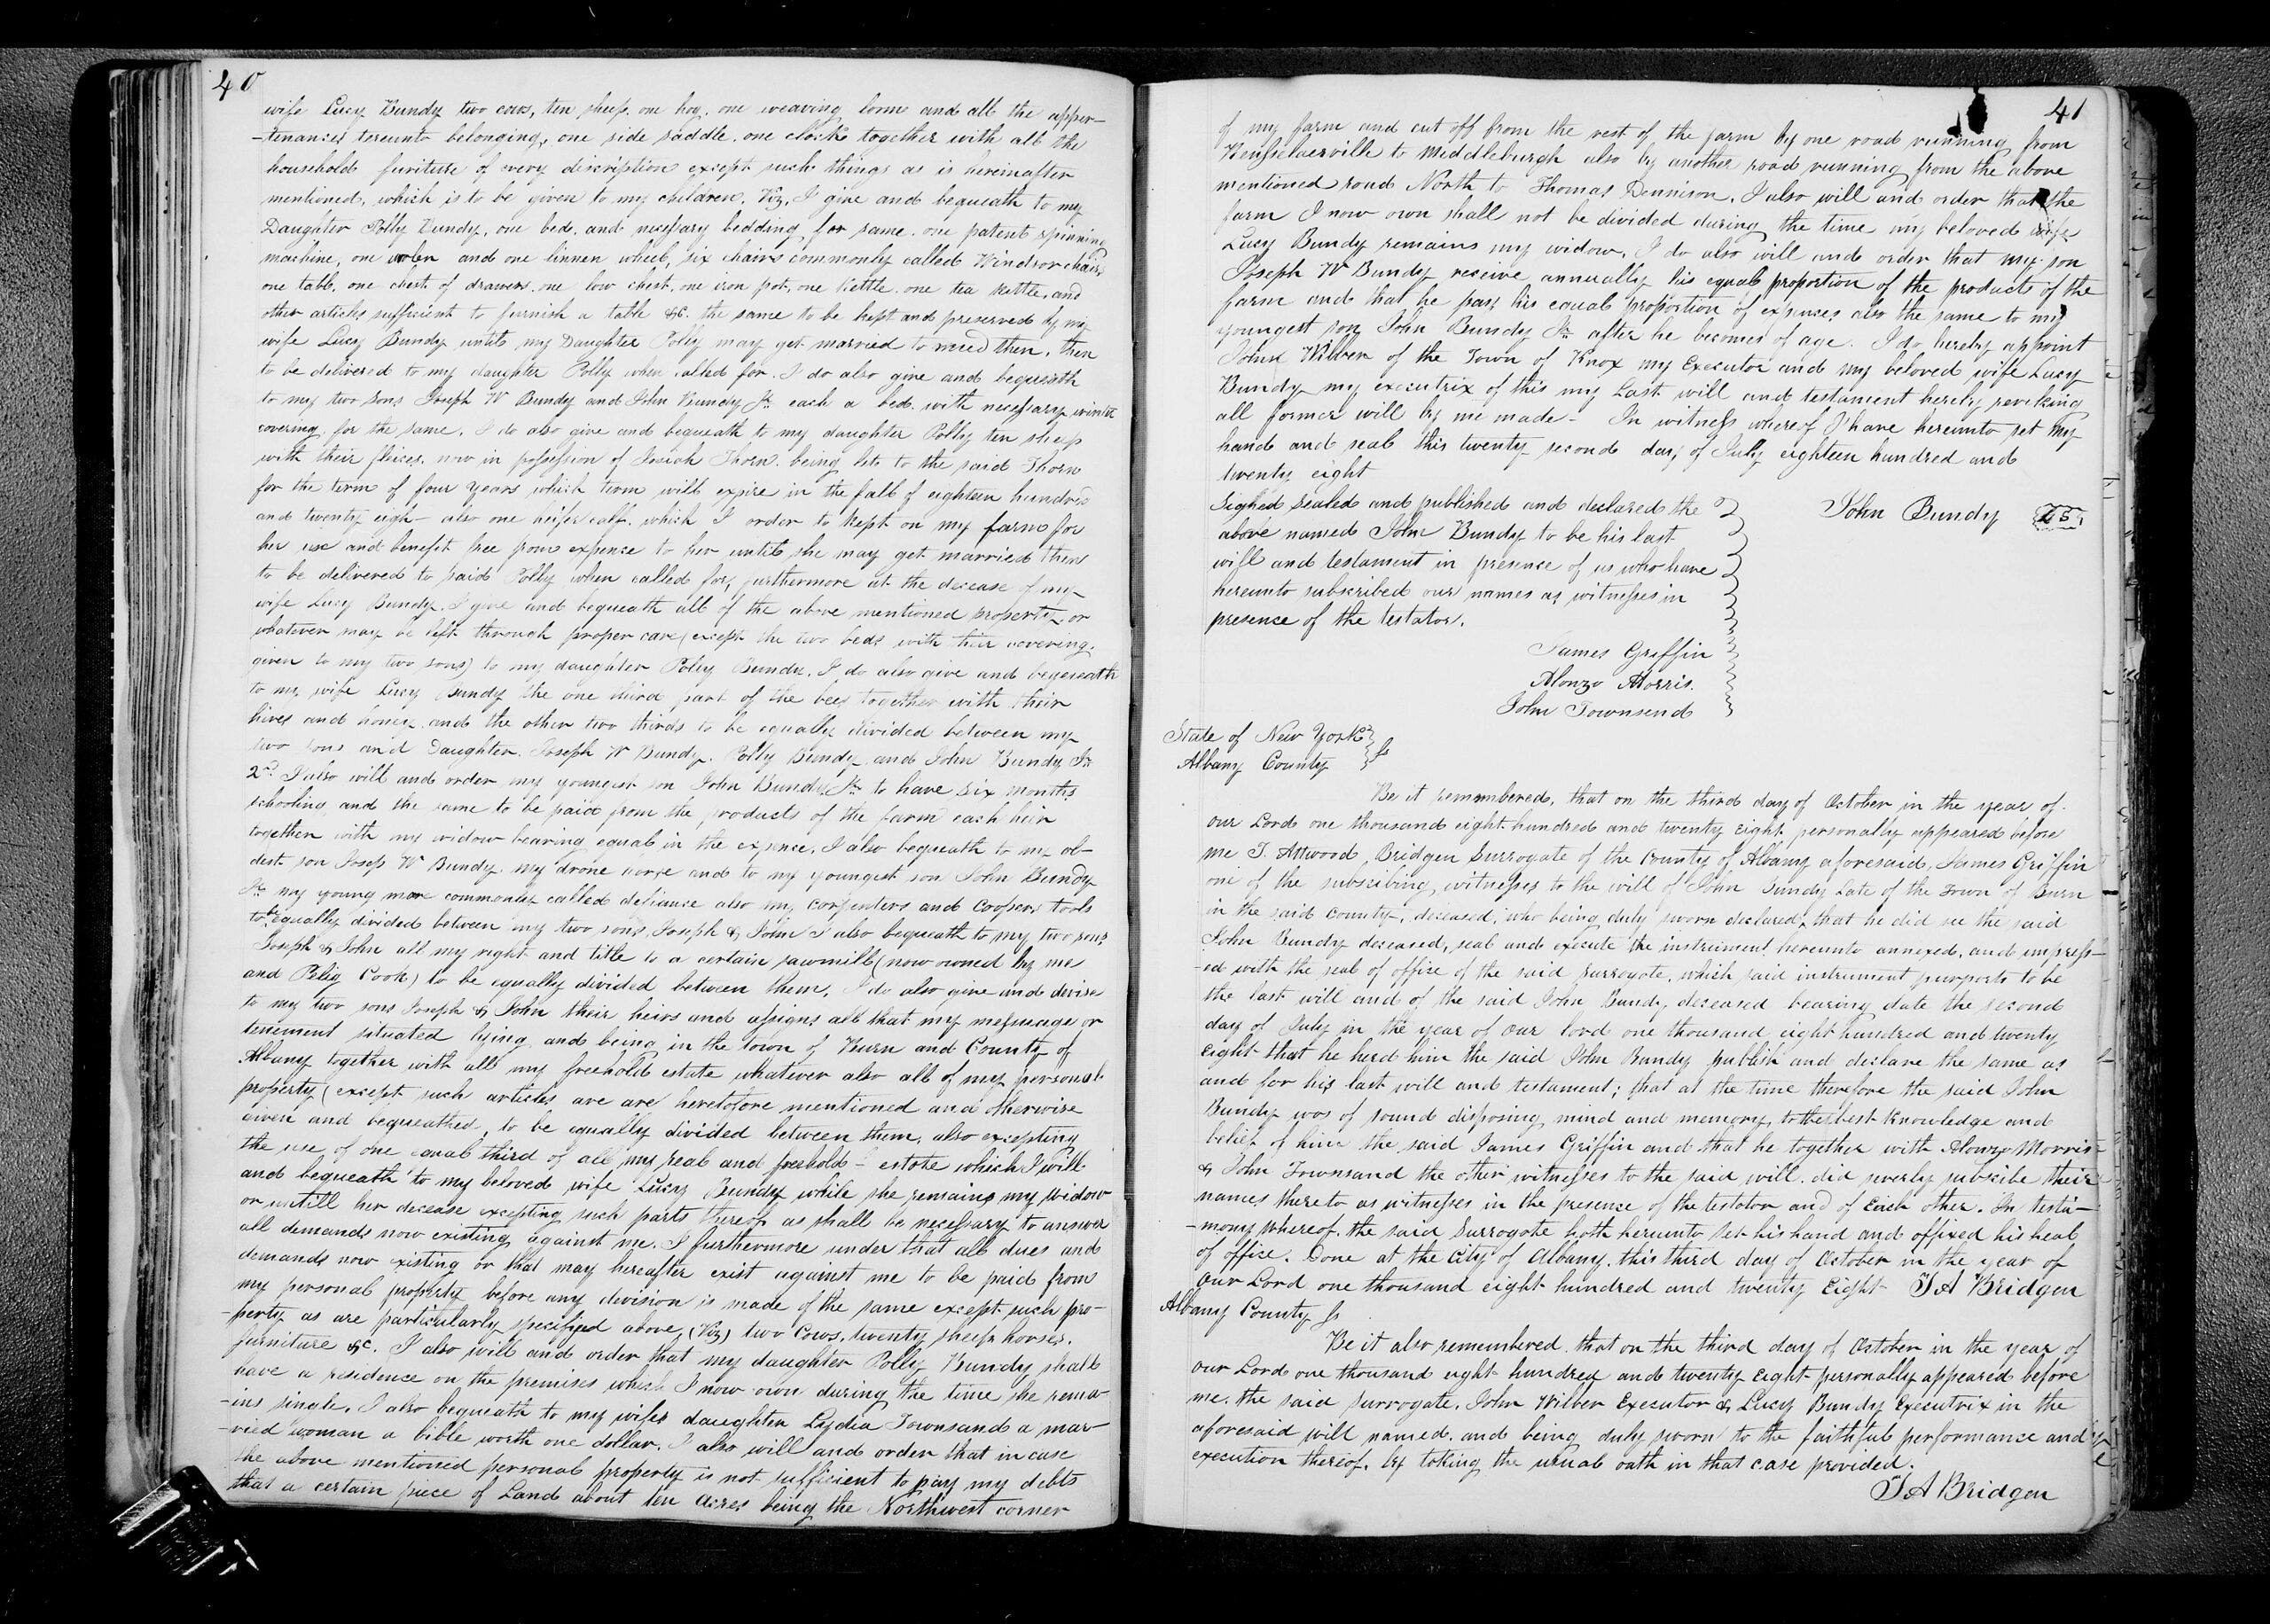 40
wife Lucy Bundy two cows, ten sheep, one hog, one weaving loom and all the apper-
-tenances tereunto belonging, one side saddle, one clock together with all the
household furniture of every discription except such things as is hereinafter
mentioned, which is to be given to my children. Viz, I give and bequeath to my
Daughter Polly Bundy, one bed, and necessary bedding for same, one patent spinning
machine, one wolen and one linnen wheel, six chairs commonly called Windsor chairs
one table, one chest of drawers, one low chest, one iron pot, one kettle, one tea kettle, and
other articles sufficient to furnish a table &c. the same to be kept and preserved by my
wife Lucy Bundy until my Daughter Polly may get married to need then, then
to be delivered to my daughter Polly when called for. I do also give and bequeath
to my two sons Joseph W Bundy and John Bundy Jr. each a bed with necessary winter
covering for the same. I do also give and bequeath to my daughter Polly ten sheep
with their fleices, now in possession of Josiah Thorn, being let to the said Thorn
for the term of four years which term will expire in the fall of eighteen hundred
and twenty eigh- also one heifer calf which I order to kept on my farm for
her use and benefit free from expense to her until she may get married then
to be delivered to said Polly when called for, furthermore at the decease of my
wife Lucy Bundy, I give and bequeath all of the above mentioned property or
whatever may be left through proper care (except the two beds with their covering,
given to my two sons) to my daughter Polly Bundy. I do also give and beqeueath
to my wife Lucy Bundy the one third part of the bees together with their
hives and honey and the other two thirds to be equally divided between my
two sons and Daughter Joseph W Bundy, Polly Bundy and John Bundy Jr
2nd. I also will and order my youngest son John Bundy Jr. to have six months
schooling and the same to be paid from the products of the farm each heir
together with my widow bearing equal in the expence, I also bequeath to my ol-
dest son Joseps W Bundy my drone horse and to my youngest son John Bundy
Jr. my young mare commonly called defiance also my carpenters and coopers tools
to be equally divided between my two sons, Joseph & John I also bequeath to my two sons
Joseph & John all my right and title to a certain sawmill (now owned by me
and Pelig Cook) to be equally divided between them. I do also give and devise
to my two sons Joseph & John their heirs and assigns all that my messuage or
tenement situated lying and being in the town of Burn and County of
Albany together with all my freehold estate whatever also all of my personal
property (except such articles are are heretofore mentioned and otherwise
given and bequeathed, to be equally divided between them, also excepting
the use of one equal third of all my real and freehold - estate which I will
and bequeath to my beloved wife Lucy Bundy while she remains my widow
or untill her decease excepting such parts thereof as shall be necessary to answer
all demands now existing against me. I furthermore under that all dues and
demands now existing or that may hereafter exist against me to be paid from
my personal property before any division is made of the same except such pro-
-perty as are particularly specifyed above, (Viz) two Cows, twenty sheep horses,
furniture &c. I also will and order that my daughter Polly Bundy shall
have a residence on the premises which I now own during the time she rema-
-ins single, I also bequeath to my wifes daughter Lydia Townsand a mar-
-ried woman a bible worth one dollar. I also will and order that in case
the above mentioned personal property is not sufficient to pay my debts
that a certain piece of Land about ten acres being the Northwest corner
41
of my farm and cut off from the rest of the farm by one road running from
Rensselaerville to Middleburgh also by another road running from the above
mentioned road North to Thomas Dennison, I also will and order that the
farm I now own shall not be divided during the time my beloved wife
Lucy Bundy remains my widow, I do also will and order that my son
Joseph W Bundy receive annually his equal proportion of the products of the
farm and that he pay his equal proportion of expenses also the same to my
youngest son John Bundy Jr. after he becomes of age. I do hereby appoint
John Wilber of the Town of Knox my Executor and my beloved wife Lucy
Bundy my executrix of this my Last will and testament hereby reveking
all former will by me made - In witness whereof I have hereunto set my
hand and seal this twenty second day of July eighteen hundred and
twenty eight
Sighed sealed and published and declared the
above named John Bundy to be his last
will and testament in presence of us who have
hereunto subscribed our names as witnesses in
presence of the testator.
John Bundy L S
James Griffin
Alonzo Morris.
John Townsend
State of New York
Albany County ss
Be it remembered, that on the third day of October in the year of
our Lord one thousand eight hundred and twenty eight personally appeared before
me T. Attwood Bridgen Surrogate of the County of Albany aforesaid, James Griffin
one of the subscibing witnesses to the will of John Bundy Late of the Town of Burn
in the said County, deceased, who being duly sworn declared, that he did see the said
John Bundy deceased, seal and execute the instrument hereunto annexed, and impress-
-ed with the seal of office of the said surrogate, which said instrument purports to be
the last will and of the said John Bundy deceased bearing date the second
day of July in the year of our lord one thousand eight hundred and twenty
eight that he herd him the said John Bundy publish and declare the same as
and for his last will and testament; that at the time therefore the said John
Bundy was of sound disposing mind and memory, to the best knowledge and
belief of him the said James Griffin and that he together with Alonzo Morris
& John Townsand the other witnesses to the said will, did severly subscibe their
names thereto as witnesses in the presence of the testator and of Each other. In testi-
-mony whereof, the said Surrogate hath hereunto set his hand and affixed his seal
of office. Done at the City of Albany, this third day of October in the year of
Our Lord one thousand eight hundred and twenty Eight T A Bridgen
Albany County ss
Be it also remembered, that on the third day of October in the year of
our Lord one thousand eight hundred and twenty eight personally appeared before
me, the said surrogate, John Wilber Executor & Lucy Bundy Executrix in the
aforesaid will named, and being duly sworn to the faithful performance and
execution thereof, by taking the usual oath in that case provided.
T A Bridgen